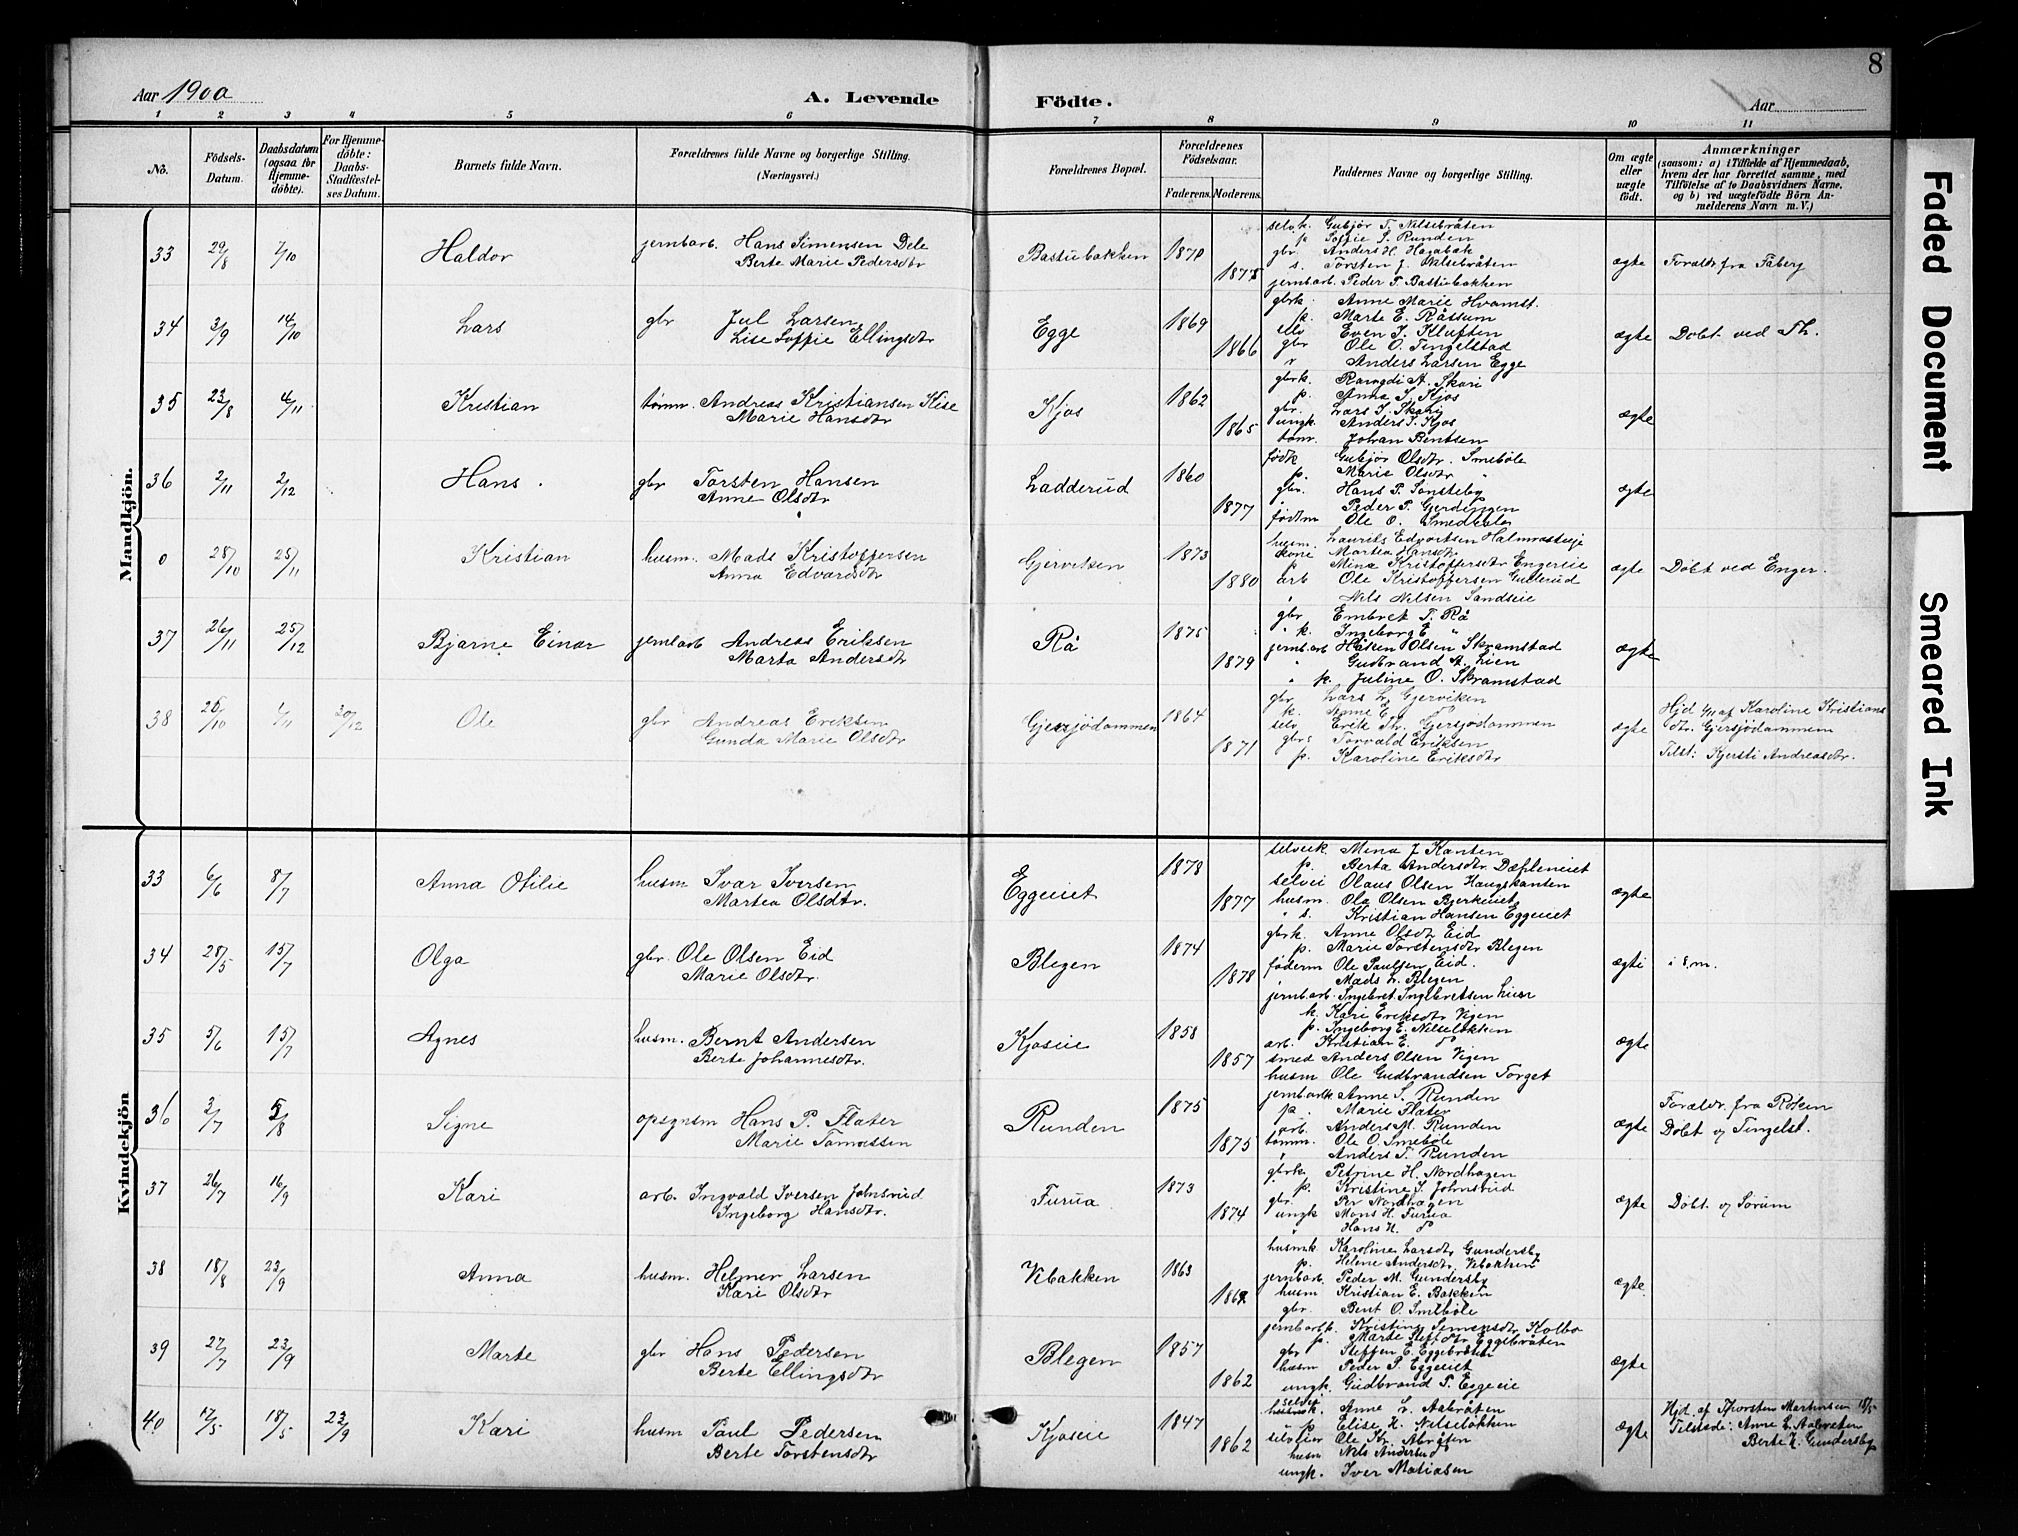 8
Aar 1900
A. Levende
Födte.
Aar
1 2 3 4 5 6 7 8 9 10 11
No.
Födsels-Datum.
Daabsdatum (ogsaa for Hjemme-döbte).
For Hjemme-döbte: Daabs-Stadfæstel-ses Datum.
Barnets fulde Navn.
Forældrenes fulde Navne og borgerlige Stilling. (Næringsvei.)
Forældrenes Bopæl.
Forældrenes Födselsaar.
Faderens. Moderens.
Faddernes Navne og borgerlige Stilling.
Om ægte eller uægte födt.
Anmærkninger
(saasom: a) i Tilfælde af Hjemmedaab, hvem der har forrettet samme, med Tilföielse af to Daabsvidners Navne, og b) ved uægtefödte Börn An-melderens Navn m. V.)
Mandkjön.
33 29/8 7/10 Haldor jernbarb. Hans Simensen Dele
Berte Marie Pedersdtr
Bastubakken 1870 1875
selvk. Gubjør T. Nilsebråten
p. Soffie S. Runden
gbr. Anders H. Horabak
s. Torsten J. Nilsebråten
jernbarb. Peder T. Bastubakken
ægte Foraldr. fra Fåberg
34 3/9 14/10 Lars gbr Jul Larsen
Lise Soffie Ellingsdtr
Egge 1869 1866
gbrk. Anne Marie Hvamst.
p. Marte E. Råssum
selv Even J. Kluften
gbr Ole O. Tingelstad
" Anders Larsen Egge
ægte Døbt ved Th.
35 23/8 4/11 Kristian tømm. Andreas Kristiansen Kise
Marie Hansdtr
Kjos 1862 1865
gbrk. Rangdi A. Skari
p. Anna J. Kjos
gbr. Lars J. Skari
ungk. Anders J. Kjos
tømr. Johan Bentsen
ægte
36 2/11 2/12 Hans. gbr Torsten Hansen
Anne Olsdtr
Ladderud 1860 1877
fødk Gubjør Olsdtr. Smebøle
p. Marie Olsdtr "
gbr. Hans P. Sønsteby
" Peder P. Gjerdingen
fødtm Ole O. Smedbøle
ægte
0 28/10 25/11 Kristian husm. Mads Kristoffersen
Anna Edvardsdtr
Gjerviken 1873 1880
husm. Laurits Edvartsen Halmrasteie
kone Martea Hansdtr
p Mina Kristoffersdtr Engereie
arb Ole Kristoffersen Gullerud
" Nils Nilsen Sandseie
ægte Døbt ved Enger.
37 26/11 25/12 Bjarne Einar jernbarb Andreas Eriksen
Marta Andersdtr
Rå 1875 1879
gbr Embret T. Rå
" k. Ingeborg E "
jernbarb Håken Olsen Skramstad
" Gudbrand A. Lien
" p. Juline O. Skramstad
ægte
38 26/10 4/11 30/12 Ole gbr Andreas Eriksen
Gunda Marie Olsdtr
Gjersjødammen 1864 1871
gbr Lars L. Gjerviken
k. Anne E. do
selv Erik Th. Gjersjødammen
gbrs Torvald Eriksen
p. Karoline Eriksdtr
ægte Hjd 4/11 af Karoline Kristians
dtr. Gjersjödammem
Tilst: Kjersti Andreasdtr.
Kvindekjön
33 6/6 8/7 Anna Otilie husm Ivar Iversen
Martea Olsdtr.
Eggeeiet 1878 1877
selveik Mina J Kanten
p. Berta Andersdtr Dæfleneiet
selvei Olaus Olsen Haugskanten
husm. Ole Olsen Bjerkeeiet
" s. Kristian Hansen Eggeeiet
ægte
34 28/5 15/7 Olga gbr. Ole Olsen Eid
Marie Olsdtr.
Blegen 1874 1878
gbrk. Anne Olsdtr Eid
p. Marie Torstensdtr Blegen
føderm Ole Paulsen Eid.
" Mads L. Blegen
jernbarb. Ingebret Ingebretsen Lien
ægte i 8 m.
35 5/6 15/7 Agnes husm. Bernt Andersen
Berte Johannesdtr.
Kjoseie 1858 1857
k. Kari Eriksdtr Vigen
p. Ingeborg E. Nilseløkken
arb. Kristian E. do
smed Anders Olsen Vigen
husm Ole Gudbrandsen Torget
ægte
36 3/7 5/8 Signe opsynsm Hans P. Flater
Marie Tomassen
Runden 1875 1875
jernbarbk Anne S. Runden
p. Marie Flater
arb. Anders M. Runden
tømm. Ole O. Smebøle
" Anders T. Runden
ægte Foraldr. fra Røken
Døbt v Tingelst.
37 26/7 16/9 Kari arb. Ingvald Iversen Johnsrud
Ingeborg Hansdtr.
Furua 1873 1874
gbrk. Petrine H. Nordhagen
p. Kristine J. Johnsrud
gbr. Per Nordhagen
ungk Mons H. Furua
" Hans H. do
ægte Døbt v Sørum
38 18/8 23/9 Anna husm. Helmer Larsen
Kari Olsdtr
Vebakken 1863
husmk. Karoline Larsdtr Gundersby
p. Helene Andersdtr. Vebakken
jernbarb. Peder M. Gundersby
husm Kristian E. Bakken
gbr. Bent O. Smebøle
ægte
39 27/7 23/9 Marte gbr Hans Pedersen
Berte Ellingsdtr
Blegen 1857 1862
jernbarbk. Kristine Simensdtr Kolbo
p. Marte Stefsdtr Eggebråten
gbr Steffen E. Eggebråten
husm Peder P. Eggeeiet
ungk. Gudbrand P. Eggeeie
ægte
40 17/5 18/5 23/9 Kari husm Paul Pedersen
Berte Torstensdtr
Kjoseie 1847 1862
selvei husmk. Anne L. Aabråten
" p Elise H. Nilseløkken
selveier Ole Kr. Abråten
husm Nils Anders do
ungk. Iver Matiasen
ægte Hjd. af Thorsten Martinsen 18/5
Tilstede: Anne L. Aabråten
Berte H. Gundersby
Faded Document
Smeared Ink